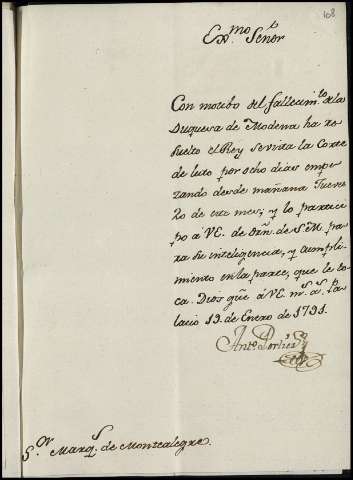 108
Ex.mo Señor
Con motibo del fallecim.to de la
Duquesa de Modena ha re
suelto el Rey se vista la Corte
de luto por ocho dias empe
zando desde mañana Jueves
20 de este mes; y lo partici
po a VE. de orñ. de S.M. pa
ra su inteligencia, y cumpli
miento en la parte, que le to
ca. Dios gue. á VE. m.s a.s Pa
lacio 19. de Enero de 1791.
Ant.o Porlier
S.or Marq.s de Montealegre.